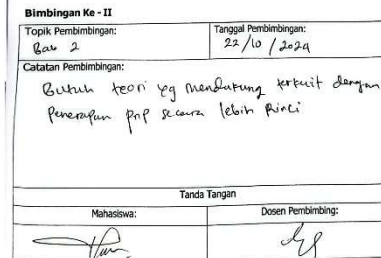 Bimbingan Ke - II
Topik Pembimbingan:
Bab 2
Tanggal Pembimbingan:
22/10/2024
Catatan Pembimbingan:
Butuh teori yg mendukung terkait dengan
Penerapan PnP secara lebih Rinci
Tanda Tangan
Mahasiswa:
Dosen Pembimbing: